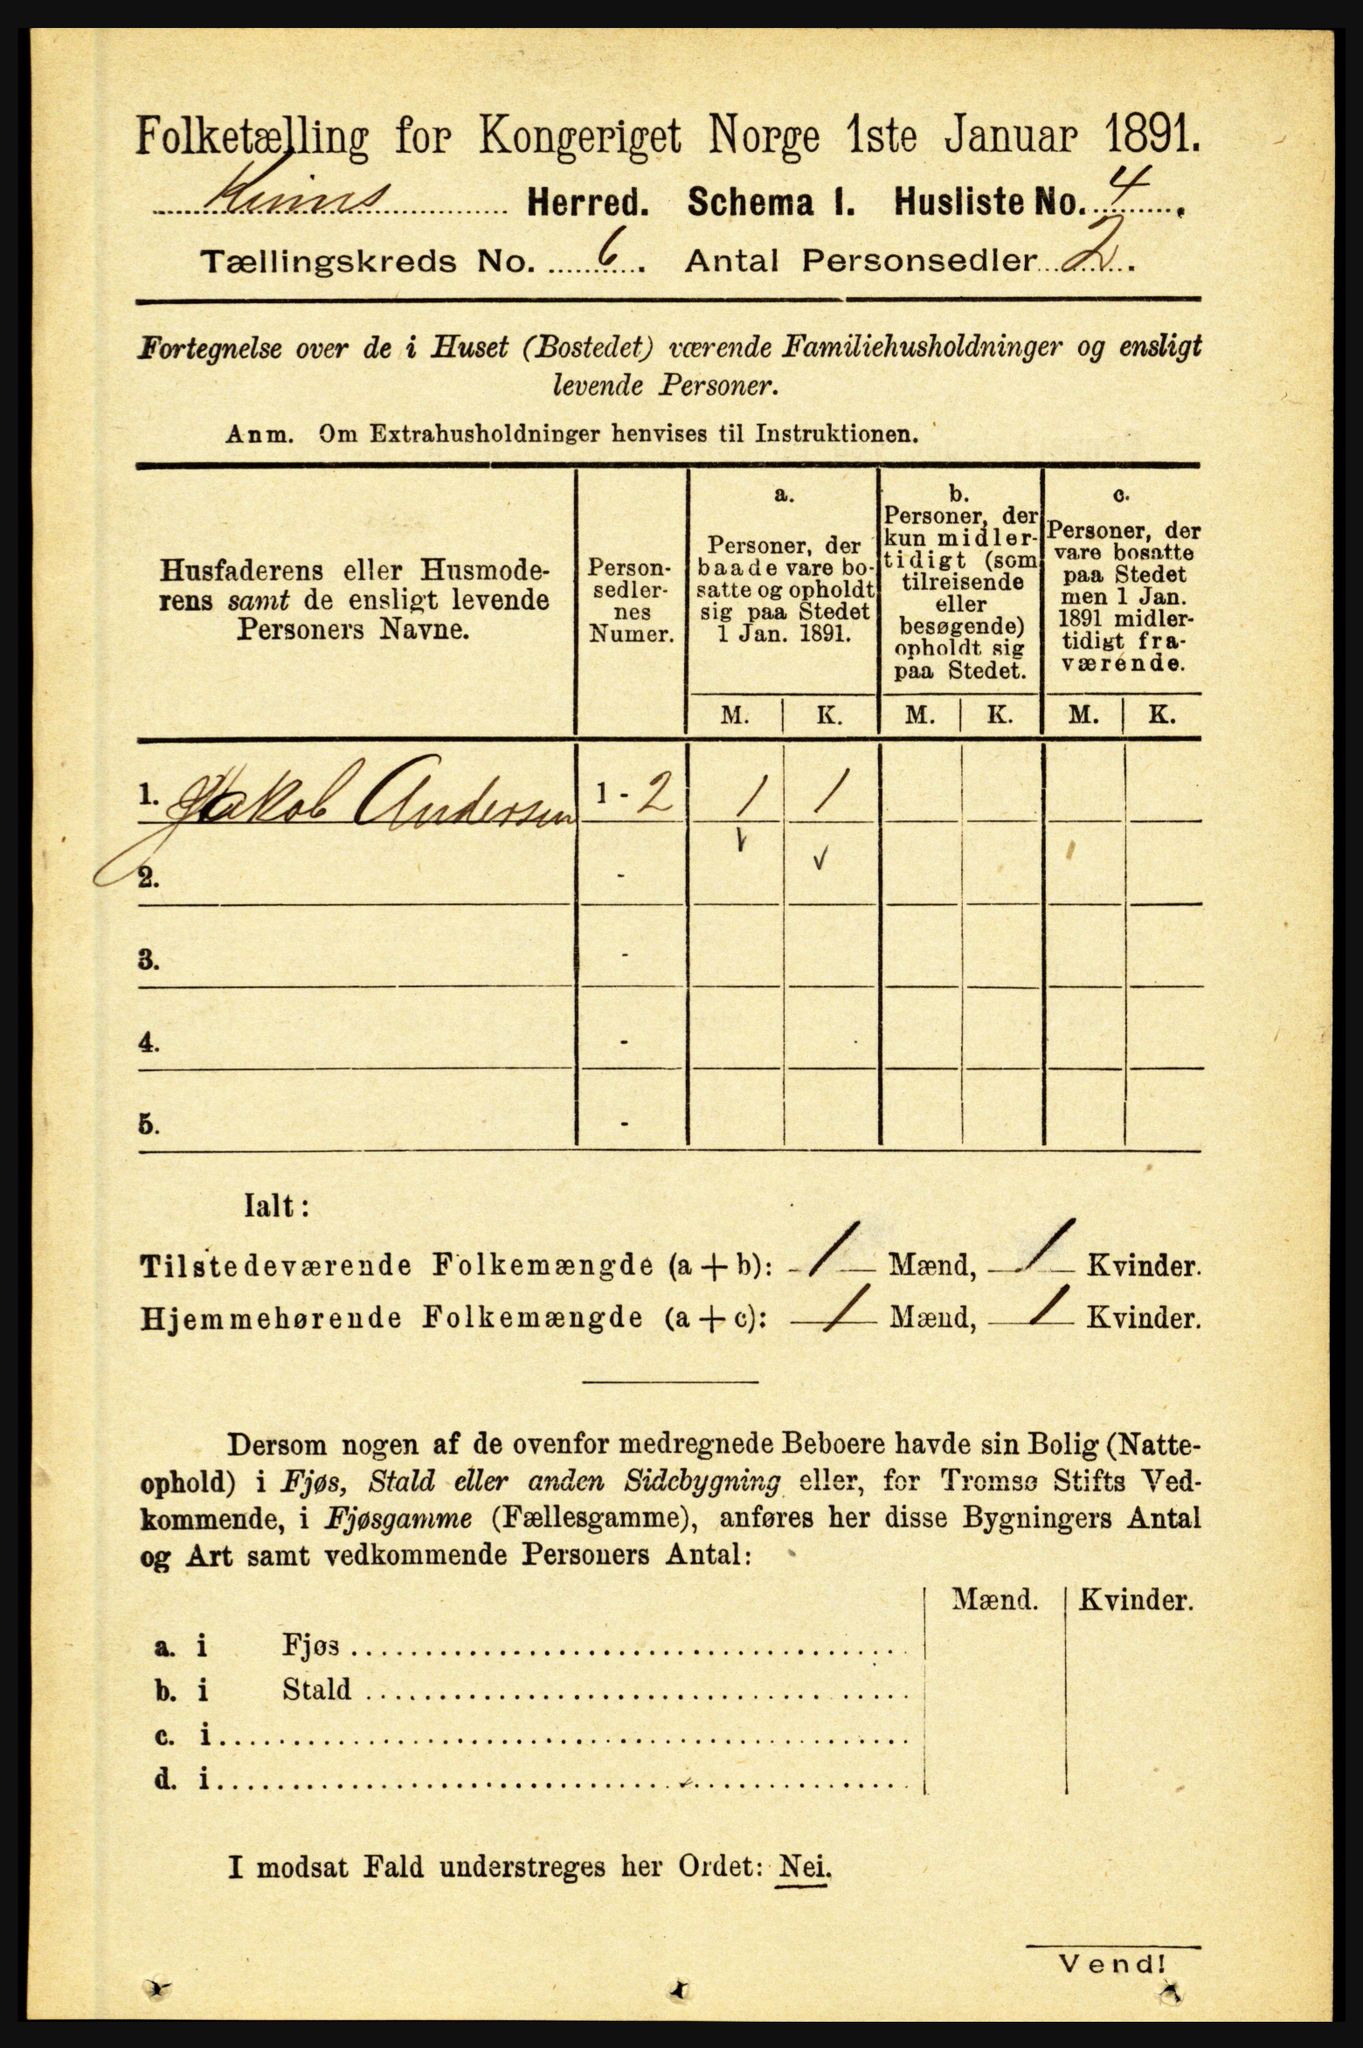 Folketælling for Kongeriget Norge 1ste Januar 1891.
Kinns Herred. Schema I. Husliste No. 4.
Tællingskreds No. 6. Antal Personsedler 2.
Fortegnelse over de i Huset (Bostedet) værende Familiehusholdninger og ensligt
levende Personer.
Anm. Om Extrahusholdninger henvises til Instruktionen.
Husfaderens eller Husmode-
rens samt de ensligt levende
Personers Navne.
Person-
sedler-
nes
Numer.
a.
Personer, der
baade vare bo-
satte og opholdt
sig paa Stedet
1 Jan. 1891.
b.
Personer, der
kun midler-
tidigt (som
tilreisende
eller
besøgende)
opholdt sig
paa Stedet.
c.
Personer, der
vare bosatte
paa Stedet
men 1 Jan.
1891 midler-
tidigt fra-
værende.
M. K. M. K. M. K.
1. Jakob Andersen 1 - 2 1 1
2. -
3. -
4. -
5. -
Ialt:
Tilstedeværende Folkemængde (a + b): 1 Mænd, 1 Kvinder.
Hjemmehørende Folkemængde (a + c): 1 Mænd, 1 Kvinder.
Dersom nogen af de ovenfor medregnede Beboere havde sin Bolig (Natte-
ophold) i Fjøs, Stald eller anden Sidebygning eller, for Tromsø Stifts Ved-
kommende, i Fjøsgamme (Fællesgamme), anføres her disse Bygningers Antal
og Art samt vedkommende Personers Antal:
Mænd. Kvinder.
a. i Fjøs
b. i Stald
c. i
d. i
I modsat Fald understreges her Ordet: Nei.
Vend!